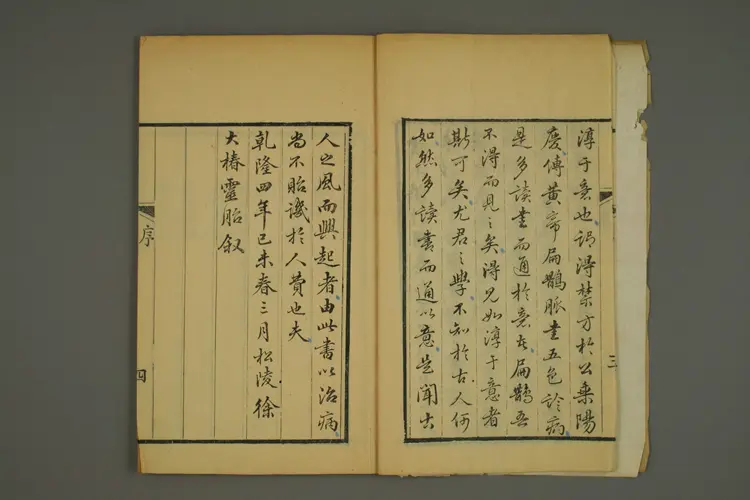 淳于意也謂得禁方於公乗陽
慶傳黄帝扁鵲脈書五色診病
是多讀書而通於意者扁鵲吾
不得而見之矣得見如淳于意者
斯可矣尤君之學不知於古人何
如然多讀書而通以意是聞古
三
人之風而興起者由此書以治病
尚不貽譏於人費也夫
乾隆四年己未春三月松陵徐
大椿靈胎叙
序
四